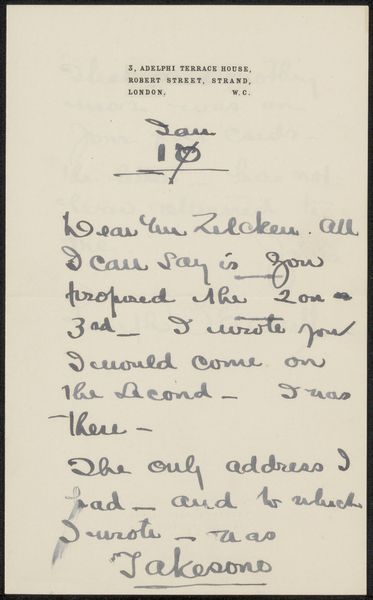 3, ADELPHI TERRACE HOUSE,
ROBERT STREET, STRAND,
LONDON, W.C.
Jan
10
Dear Mr Zilcken. All
I can say is you
proposed the 2 or
3rd — I wrote you
I would come on
the second — I was
there —
The only address I
had — and to which
I wrote — was
Jakesons